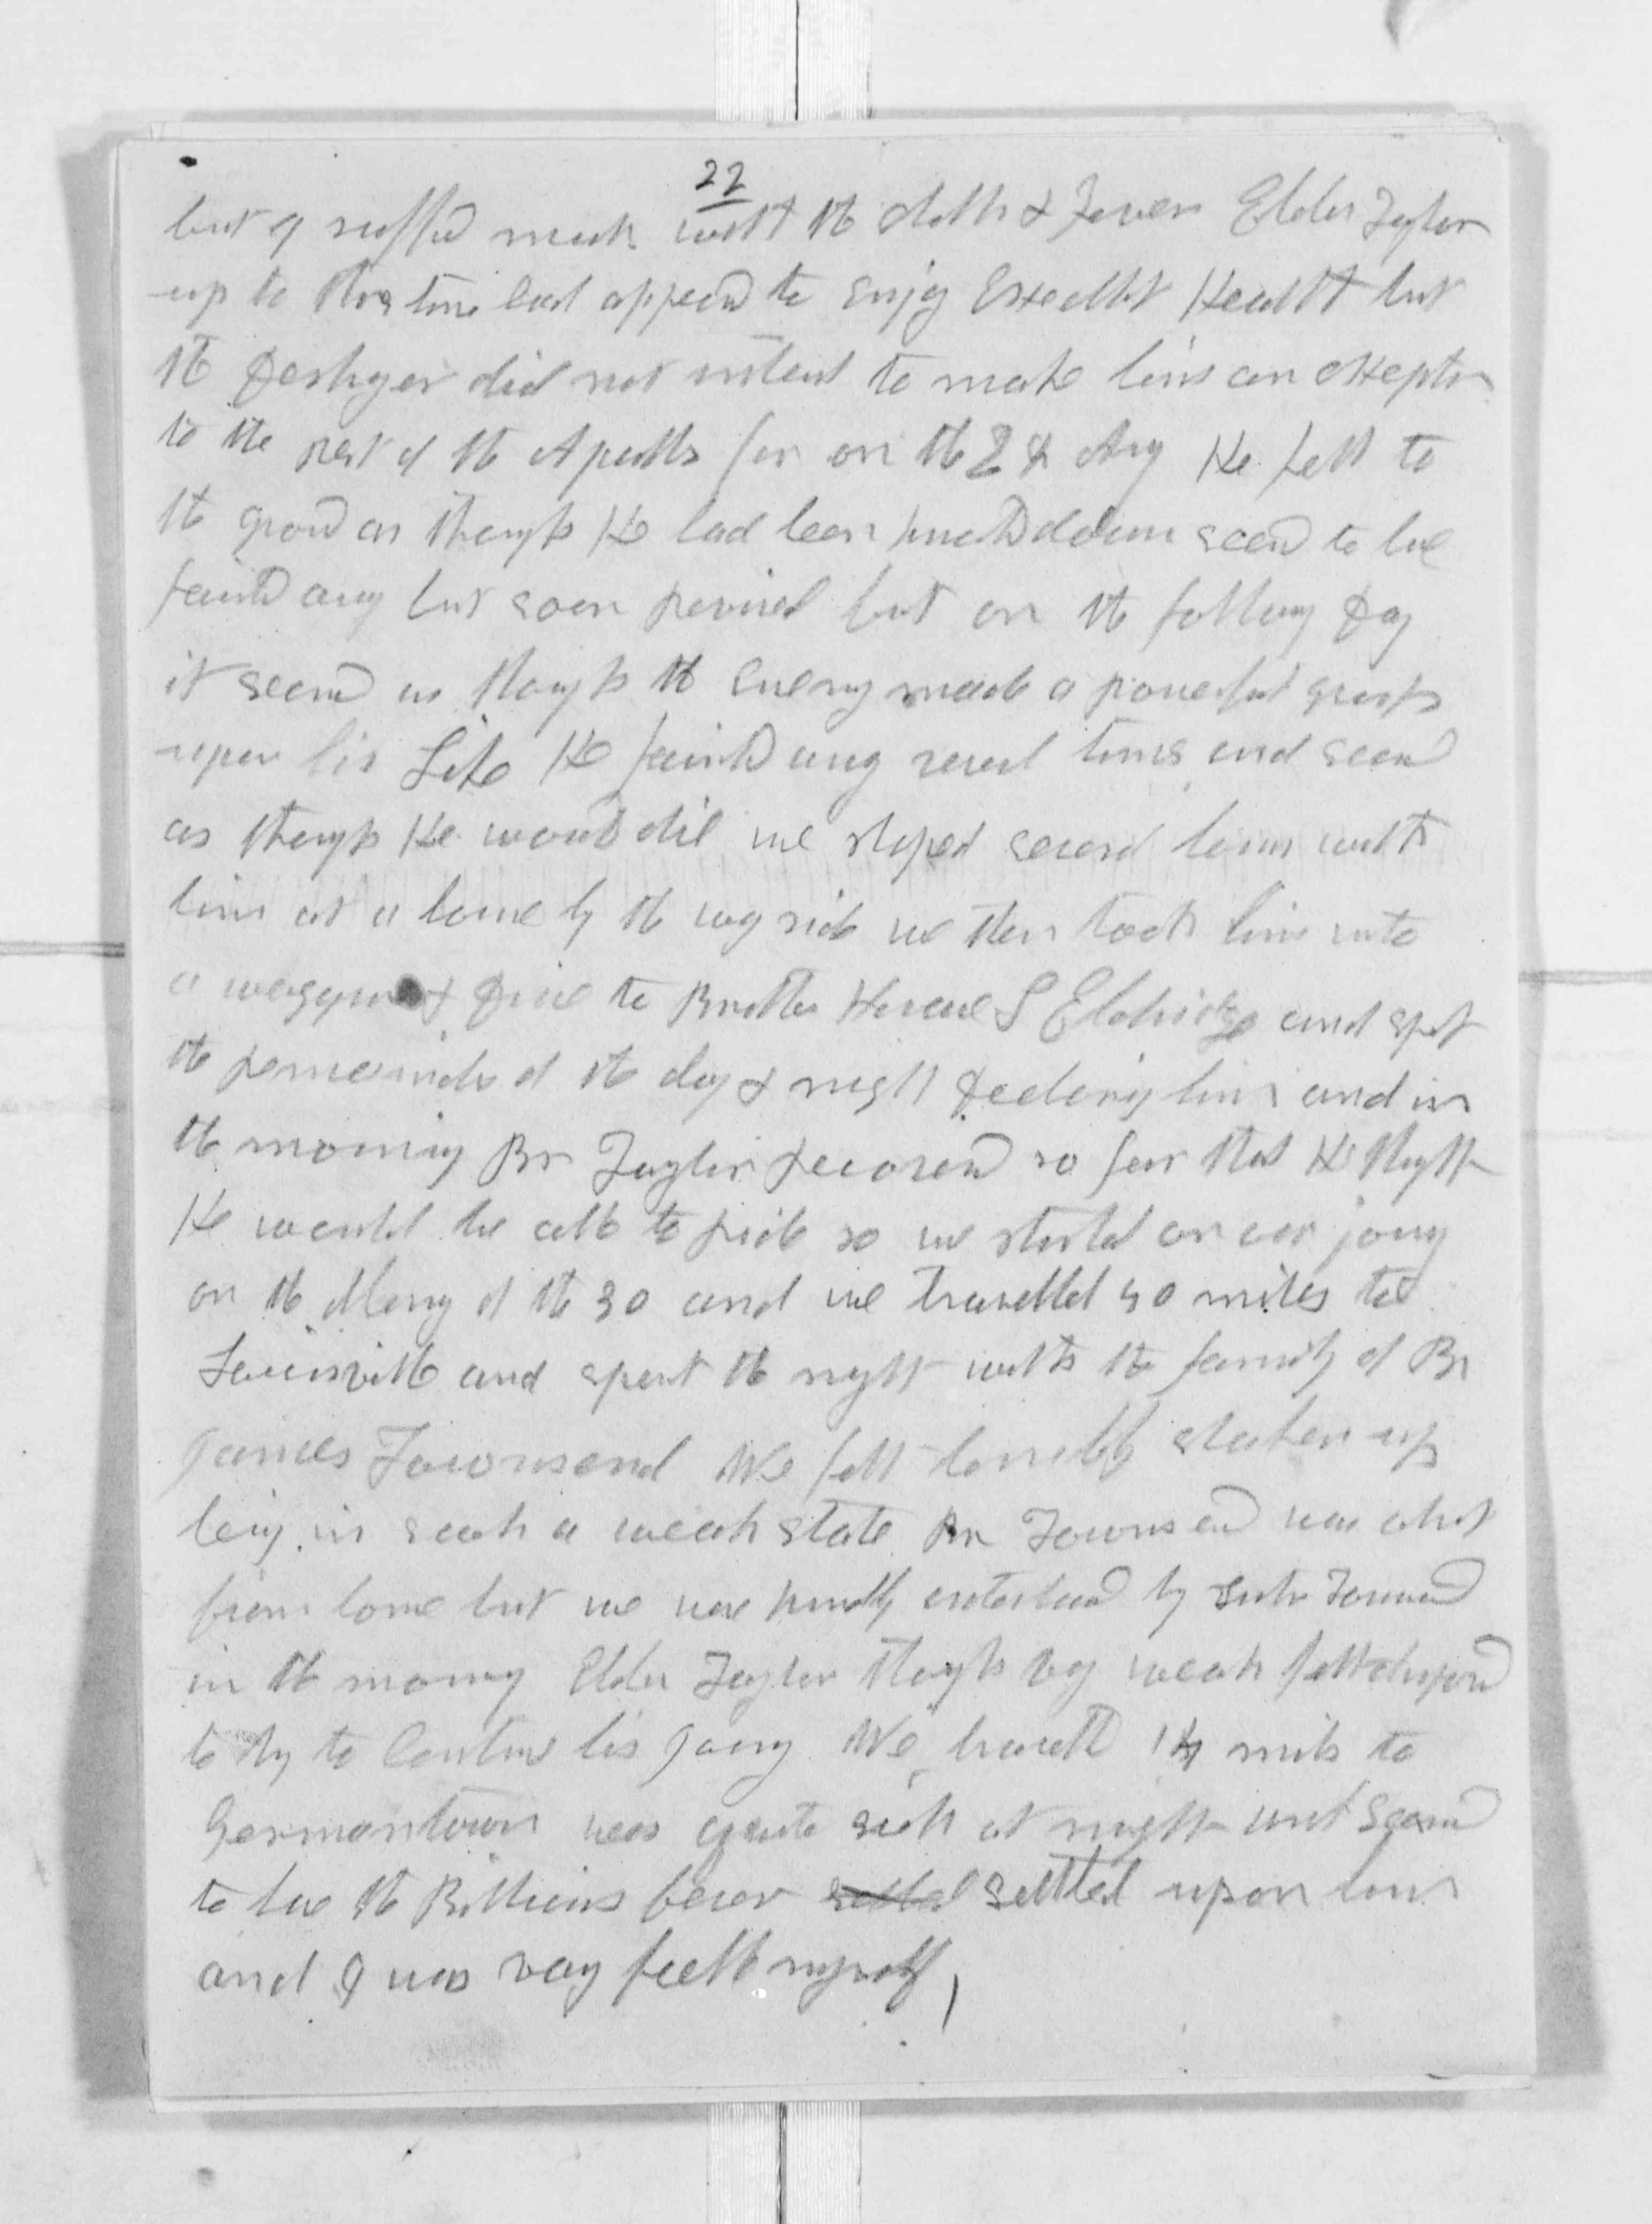 22
but I suffed much with the chills & Fever Elder Taylor
up to this time had appeard to enjoy Excellet Health but
the Destryer did not intend to make him an exception
to the rest of the Apostls for on the 28 Aug He fell to
the groud as though He had been knockd down seemd to have
faintd away but soon revived but on the following day
it seemd as though the Enemy made a powerful grasp
upon his Life He faintd away sevel times and seemd
as though He would die we stoped several hours with
him at a house by the way side we then took him into
a waggon & drove to Brother Horace S Eldridge and spent
the remainder of the day & night doctering him and in
the morning Br Taylor recovered so far that He thought
He would be able to ride so we started on our journy
on the Morng of the 30 and we travelled 40 miles to
Louisville and spent the night with the family of Br
James Townsend We felt terribly shaken up
being in such a weak state Br Townsend was absent
from home but we were kindly entertaind by Sister Townsend
in the morning Elder Taylor though very weak felt disposed
to try to Continue his Journy We travelld 14 miles to
Germantown was quite sick at night and seemd
to have the Billious fever settled settled upon him
and I was vary feeble myself,